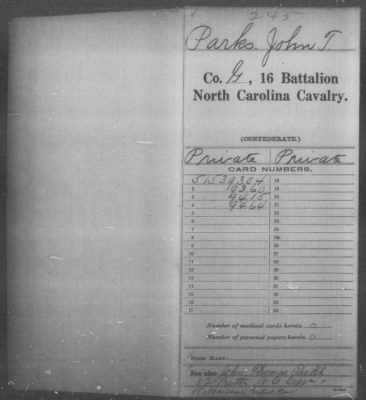 245
Parks, John T
Co. G, 16 Battalion
North Carolina Cavalry.
(CONFEDERATE.)
Private Private
CARD NUMBERS.
1 51539304 18
2 9360 19
3 9415 20
4 9464 21
5 22
6 23
7 24
8 25
9 26
10 27
11 28
12 29
13 30
14 31
15 32
16 33
17 34
Number of medical cards herein 0
Number of personal papers herein 0
BOOK MARK:
See also John Thomas
12 Batt'n N.C. Cav